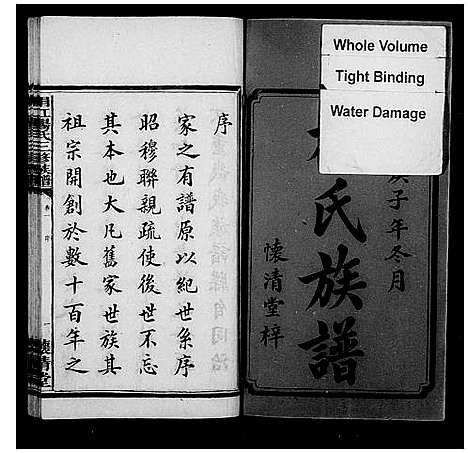 Whole Volume
Tight Binding
Water Damage
子年冬月
氏族譜
懷清堂梓
序
家之有譜原以紀世系序
昭穆聯親疏使後世不忘
其本也大凡舊家世族其
祖宗開創於數十百年之
楊氏三修族譜
懷清堂